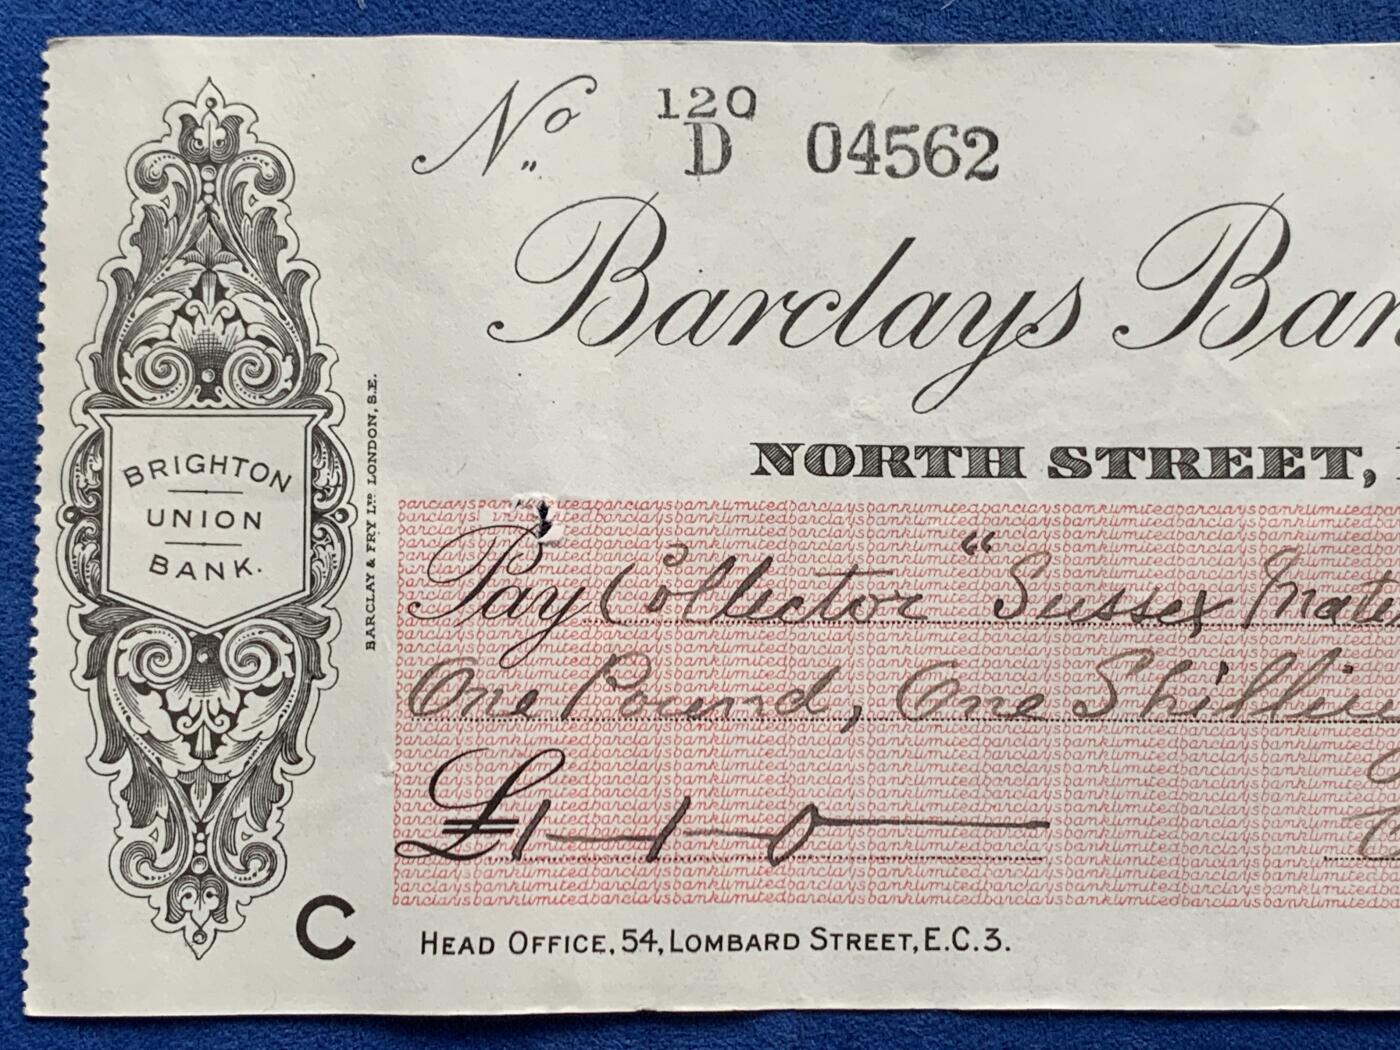 No 120
D 04562
Barclays Ban
NORTH STREET,
BRIGHTON
UNION
BANK.
BARCLAY & FRY LTD LONDON, S.E.
Pay Collector "Sussex Mate
One Pound, One Shillin
£1-1-0
C
HEAD OFFICE, 54, LOMBARD STREET, E.C.3.